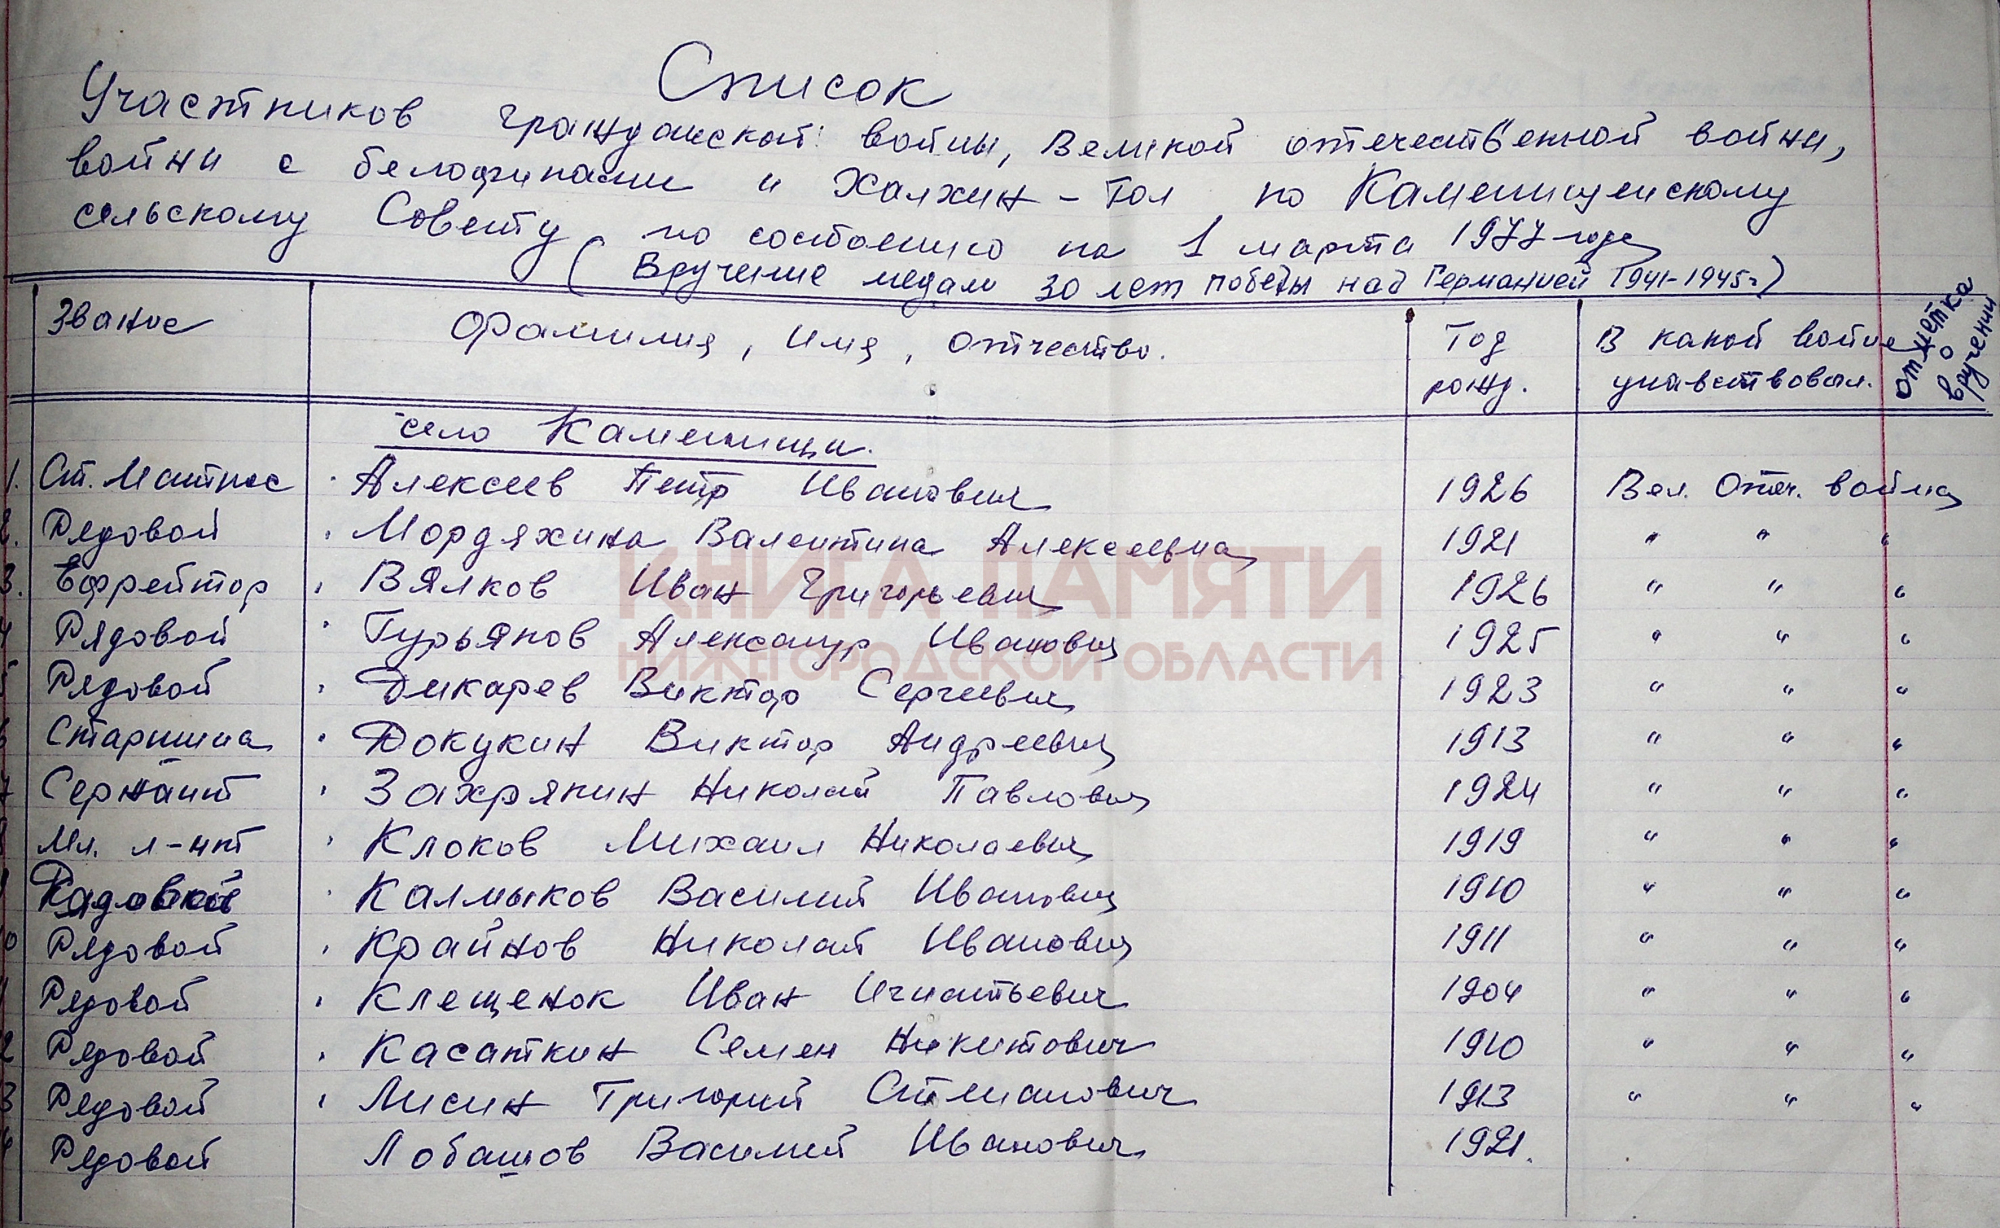 Список
Участников гражданской войны, Великой отечественной войны,
войны с белофинами и Халхин-Гол по Каменищенскому
сельскому Совету по состоянию на 1 марта 1977 года
(Вручение медали 30 лет победы над Германией 1941-1945г)
Звание Фамилия, имя, отчество. Год рожд. В какой войне участвовал. отметка о вручении
село Каменищи.
1. Ст. Матрос Алексеев Петр Иванович 1926 Вел. Отеч. война
2. Рядовой Мордяхина Валентина Алексеевна 1921 " " "
3. Ефрейтор Вялков Иван Григорьевич 1926 " " "
4 Рядовой Гурьянов Александр Иванович 1925 " " "
5 Рядовой Дикарев Виктор Сергеевич 1923 " " "
6 Старшина Докукин Виктор Андреевич 1913 " " "
7 Сержант Захряпин Николай Павлович 1924 " " "
8 Мл. л-нт Клоков Михаил Николаевич 1919 " " "
9 Рядовой Калмыков Василий Иванович 1910 " " "
0 Рядовой Крайнов Николай Иванович 1911 " " "
1 Рядовой Клещенок Иван Игнатьевич 1904 " " "
2 Рядовой Касаткин Семен Никитович 1910 " " "
3 Рядовой Лисин Григорий Степанович 1913 " " "
4 Рядовой Лобашов Василий Иванович 1921.
КНИГА ПАМЯТИ
НИЖЕГОРОДСКОЙ ОБЛАСТИ